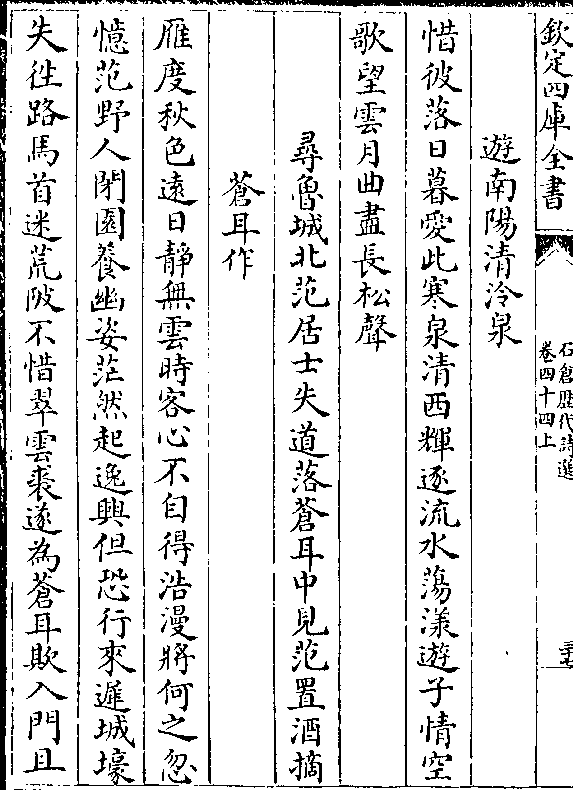 欽定四庫全書
石倉歷代詩選
卷四十四上
遊南陽清泠泉
惜彼落日暮愛此寒泉清西輝逐流水蕩漾遊子情空
歌望雲月曲盡長松聲
尋魯城北范居士失道落蒼耳中見范置酒摘
蒼耳作
雁度秋色遠日靜無雲時客心不自得浩漫將何之忽
憶范野人閉園養幽姿茫然起逸興但恐行來遲城壕
失徃路馬首迷荒陂不惜翠雲裘遂為蒼耳欺入門且